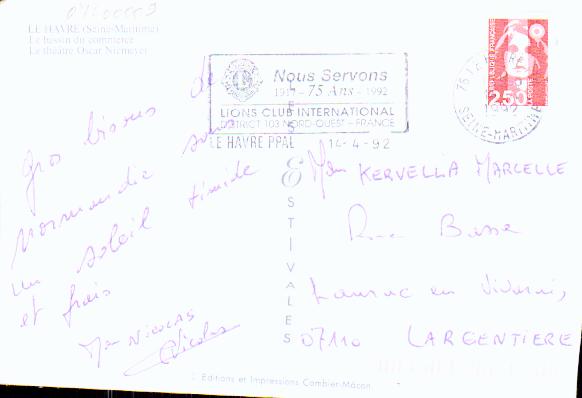 LE HAVRE (Seine-Maritime)
Le bassin du commerce
Le théâtre Oscar Niemeyer
Nous Servons
1917 - 75 Ans - 1992
LIONS CLUB INTERNATIONAL
DISTRICT 103 NORD-OUEST - FRANCE
LE HAVRE PPAL 14-4-92
2,50
SEINE-MARITIME
Gros bisous de
Normandie sous
un soleil timide
et frais
NICOLAS
Nicolas
LES ESTIVALES
KERVELLA MARCELLE
Basse
Laurac en Vivarais,
07110 LARGENTIERE
Editions et Impressions Combier-Mâcon